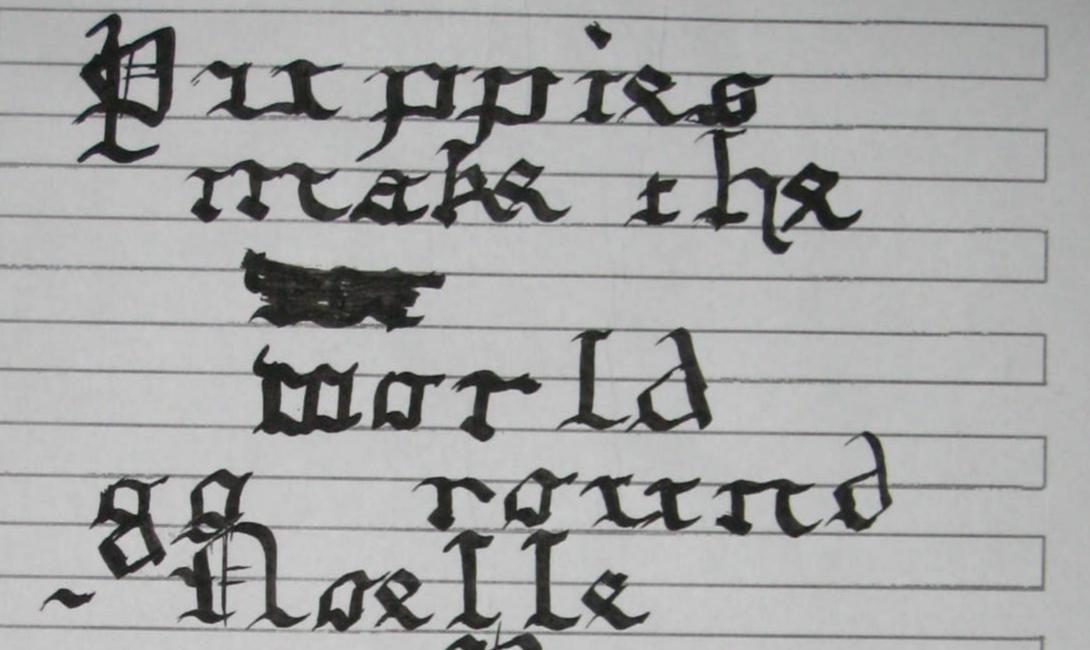 Puppies
make the
world
go round
~ Noelle